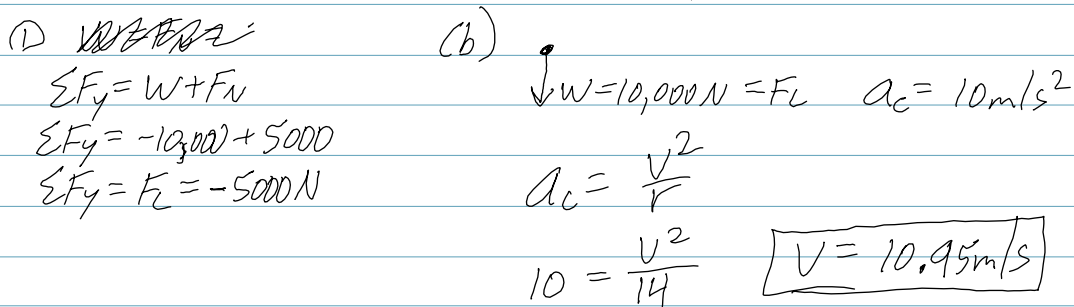 ①
ΣFy = W + FN
ΣFy = -10,000 + 5000
ΣFy = Fc = -5000N
(b)
W = 10,000N = Fc ac = 10m/s²
ac = v²/r
10 = v²/14
V = 10.95m/s